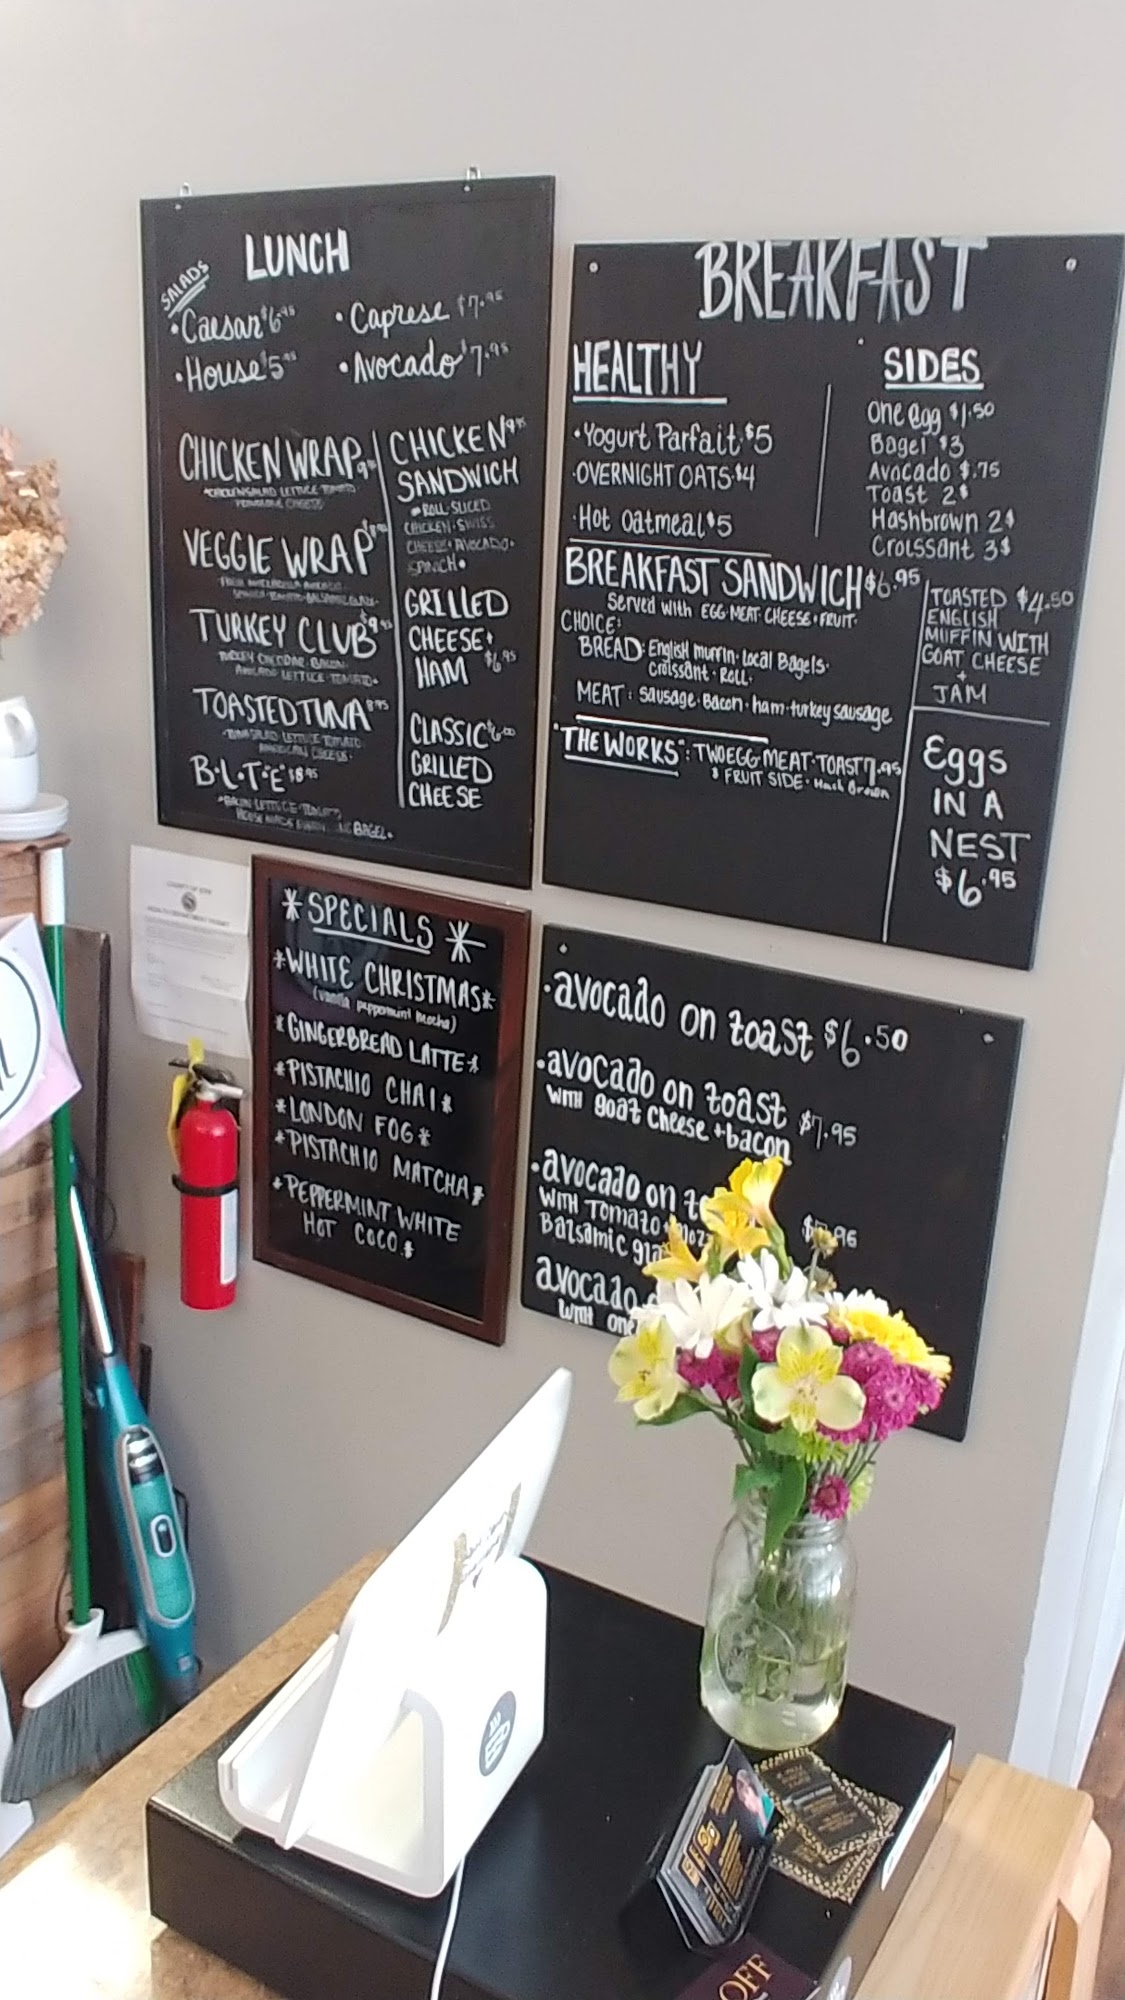 LUNCH
SALADS
•Caesar $6.95
•Caprese $7.95
•House $5.95
•Avocado $7.95
CHICKEN WRAP
PROVOLONE CHEESE
VEGGIE WRAP
TURKEY CLUB
AVOCADO LETTUCE•TOMATO•
TOASTED TUNA 8.95
AMERICAN CHEESE•
B•L•T•"E" $8.95
•BACON•LETTUCE•TOMATO
BAGEL•
CHICKEN 9.95
SANDWICH
ROLL•SLICED
CHICKEN•SWISS
CHEESE•AVOCADO•
SPINICH•
GRILLED
CHEESE+
HAM $6.95
CLASSIC $6.00
GRILLED
CHEESE
BREAKFAST
HEALTHY
•Yogurt Parfait•$5
•OVERNIGHT OATS•$4
•Hot Oatmeal•$5
SIDES
One egg $1.50
Bagel $3
Avocado $.75
Toast 2$
Hashbrown 2$
Croissant 3$
BREAKFAST SANDWICH $6.95
Served with EGG•MEAT•CHEESE•FRUIT•
CHOICE:
BREAD: English muffin•Local Bagels•
Croissant•Roll•
MEAT: Sausage•Bacon•ham•turkey sausage
"THE WORKS": TWO EGG•MEAT•TOAST 7.95
& FRUIT SIDE•Hash Brown
TOASTED $4.50
ENGLISH
MUFFIN WITH
GOAT CHEESE
+
JAM
Eggs
IN A
NEST
$6.95
*SPECIALS*
*WHITE CHRISTMAS*
(vanilla peppermint mocha)
*GINGERBREAD LATTE*
*PISTACHIO CHAI*
*LONDON FOG*
*PISTACHIO MATCHA*
*PEPPERMINT WHITE
HOT COCO*
•avocado on toast $6.50
•avocado on toast $7.95
WITH goat cheese + bacon
•avocado on
WITH TOMATO
Balsamic
avocado
WITH one
OFF